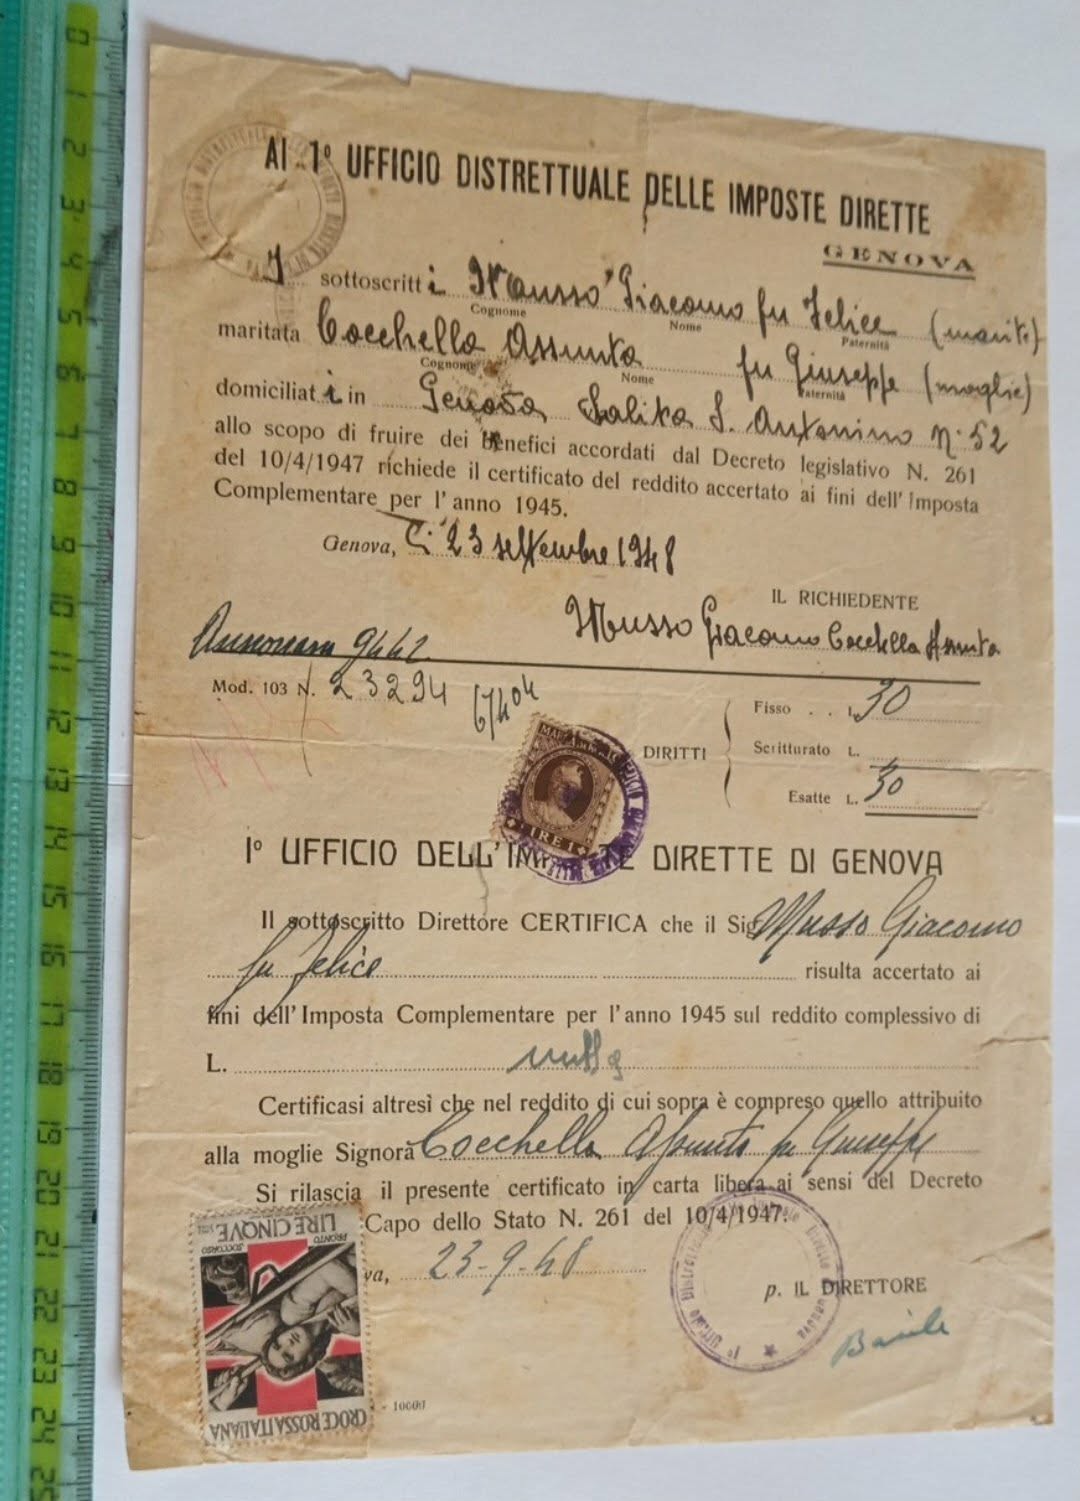 AI 1º UFFICIO DISTRETTUALE DELLE IMPOSTE DIRETTE
GENOVA
I sottoscritti Musso Giacomo fu Felice (marito)
Cognome Nome Paternità
maritata Cocchella Assunta fu Giuseppe (moglie)
Cognome Nome Paternità
domiciliati in Genova Salita S. Antonino N. 52
allo scopo di fruire dei benefici accordati dal Decreto legislativo N. 261
del 10/4/1947 richiede il certificato del reddito accertato ai fini dell'Imposta
Complementare per l'anno 1945.
Genova, li 23 settembre 1948
IL RICHIEDENTE
Musso Giacomo Cocchella Assunta
9442
Mod. 103 N. 23294
67404
DIRITTI
Fisso . . L. 30
Scritturato L.
Esatte L. 30
LIRE 1
Iº UFFICIO DELL'IMPOSTE DIRETTE DI GENOVA
Il sottoscritto Direttore CERTIFICA che il Sig. Musso Giacomo
fu Felice risulta accertato ai
fini dell'Imposta Complementare per l'anno 1945 sul reddito complessivo di
L. nulla
Certificasi altresì che nel reddito di cui sopra è compreso quello attribuito
alla moglie Signora Cocchella Assunta fu Giuseppe
Si rilascia il presente certificato in carta libera ai sensi del Decreto
Capo dello Stato N. 261 del 10/4/1947.
va, 23-9-48
p. IL DIRETTORE
1º Ufficio Distrettuale Imposte Dirette Genova
LIRE CINQUE
PRONTO SOCCORSO
CROCE ROSSA ITALIANA
- 10000
0
1
2
3
4
5
6
7
8
9
10
11
12
13
14
15
16
17
18
19
20
21
22
23
24
25